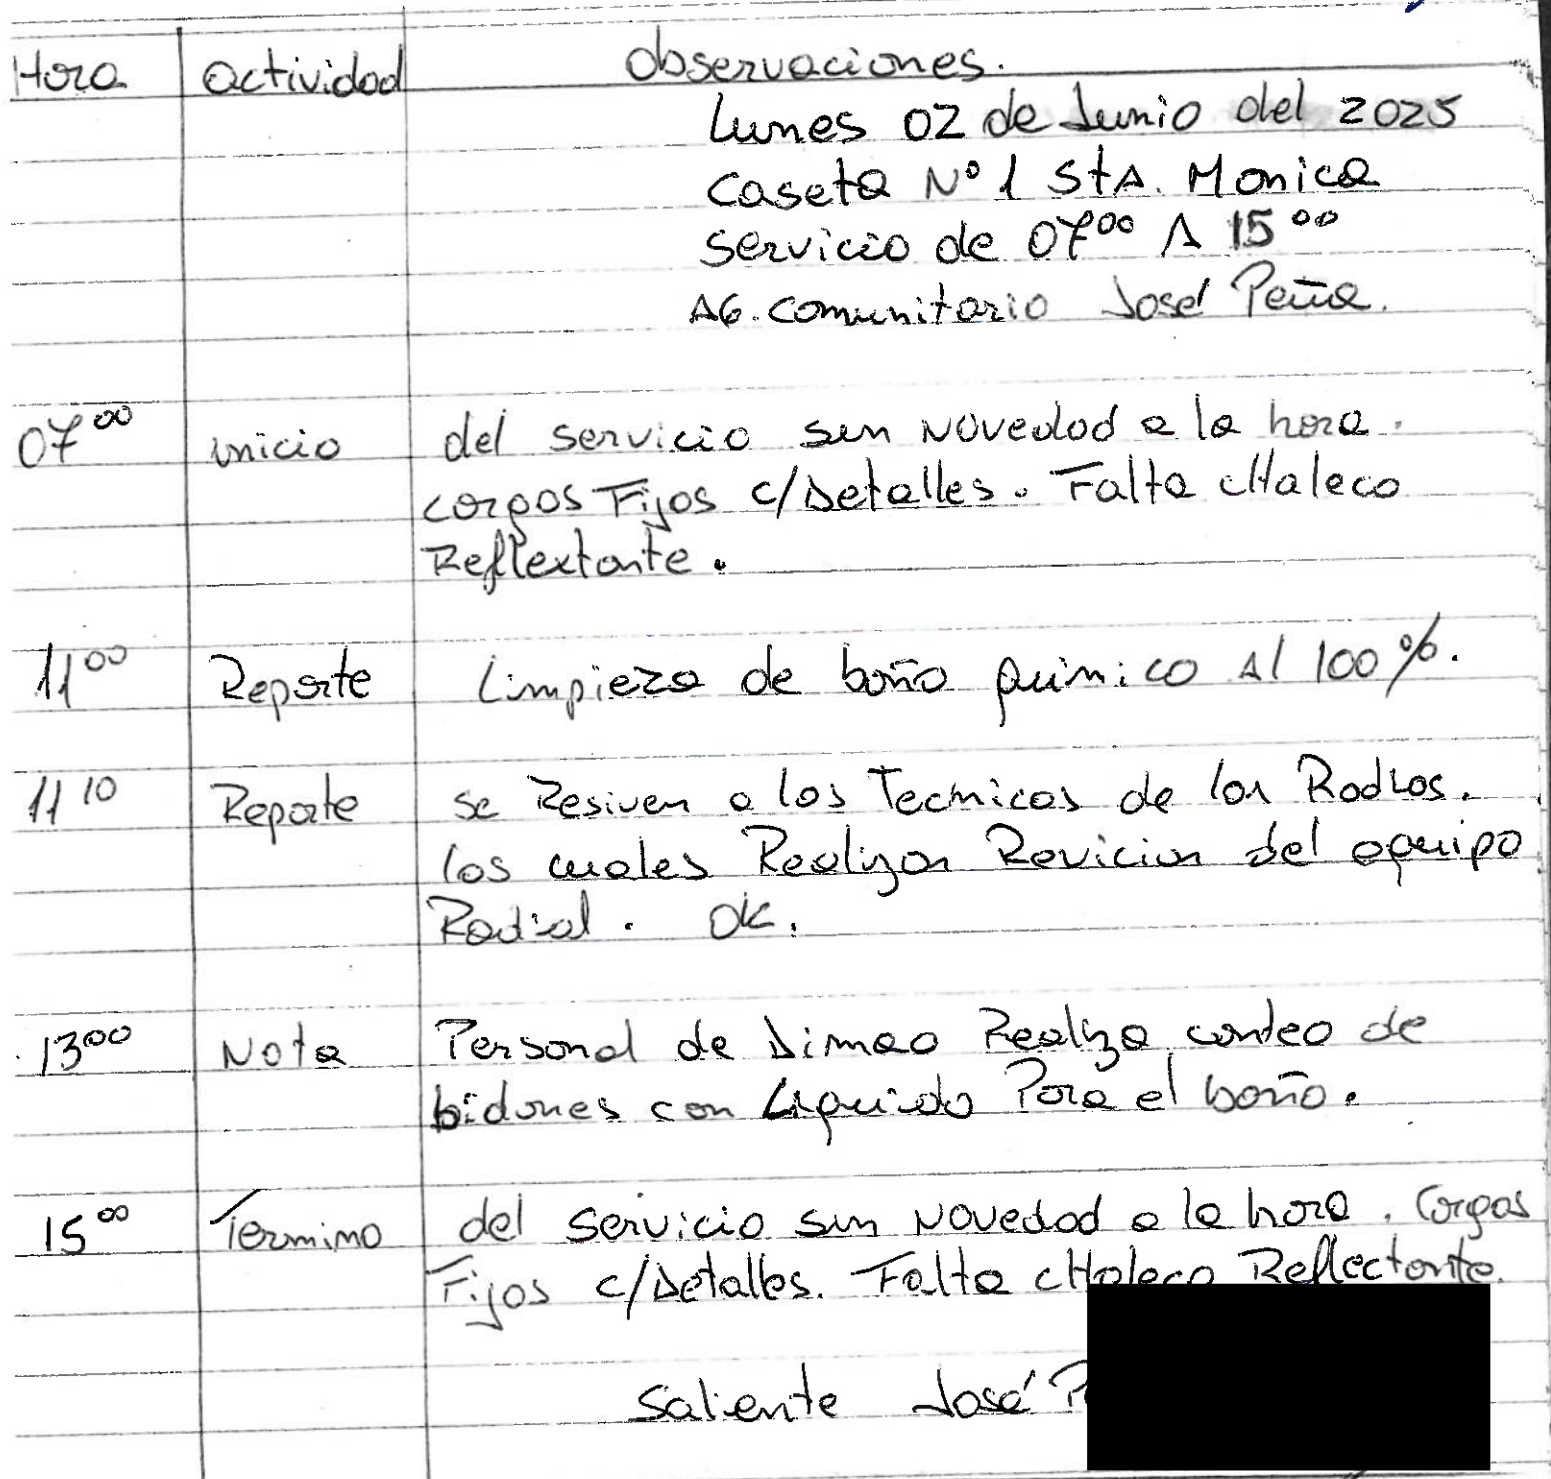 Hora actividad observaciones.
Lunes 02 de Junio del 2025
Caseta N° 1 StA. Monica
Servicio de 07⁰⁰ A 15⁰⁰
AG. Comunitario José Peña.
07⁰⁰ inicio del servicio sin Novedad a la hora.
cargos Fijos c/Detalles. Falta cHaleco
Reflextante.
11⁰⁰ Reporte Limpieza de baño quimico Al 100%.
11¹⁰ Reporte se Resiven a los Tecnicos de las Radios.
los cuales Realizan Revicion del equipo
Radial. OK.
13⁰⁰ Nota Personal de Dimao Realiza conteo de
bidones con Liquido Para el baño.
15⁰⁰ Termino del Servicio sin Novedad a la hora. Cargos
Fijos c/Detalles. Falta cHaleco Reflectante.
Saliente José